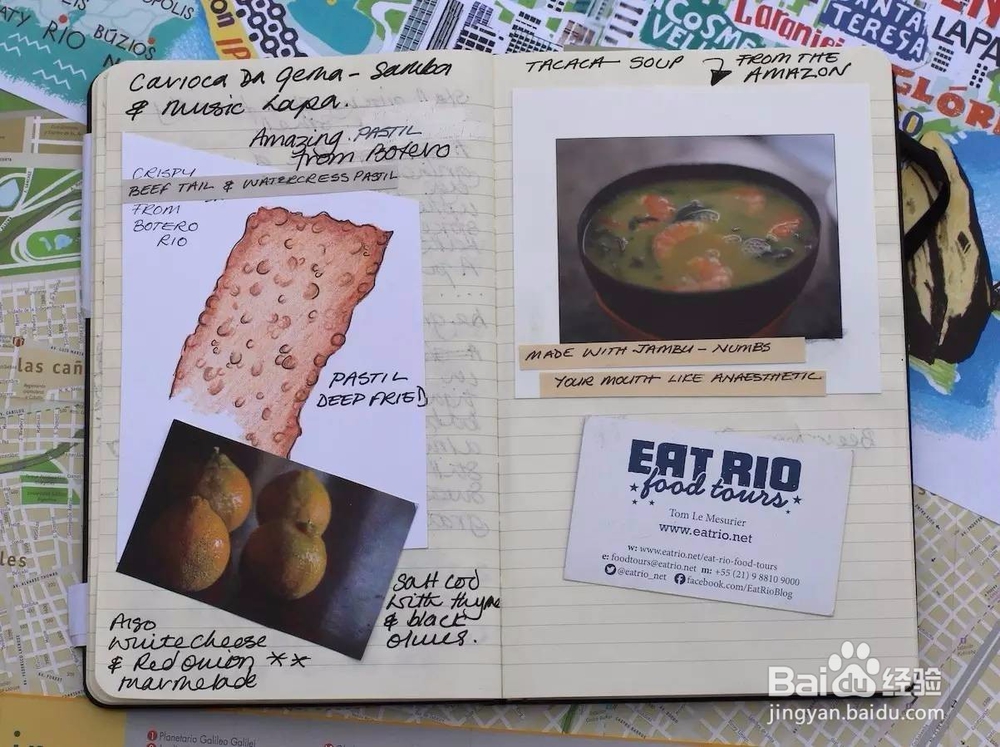 CARIOCA DA GEMA - SAMBA
& MUSIC LAPA.
Amazing PASTIL
from BOTERO
CRISPY
BEEF TAIL & WATERCRESS PASTIL
FROM
BOTERO
RIO
PASTIL
DEEP FRIED
Salt cod
with thyme
& black
olives.
Also
white cheese
& Red onion **
marmelade
TACACA SOUP
FROM THE
AMAZON
MADE WITH JAMBU - NUMBS
YOUR MOUTH LIKE ANAESTHETIC
EAT RIO
food tours
Tom Le Mesurier
www.eatrio.net
w: www.eatrio.net/eat-rio-food-tours
e: foodtours@eatrio.net m: +55 (21) 9 8810 9000
@eatrio_net facebook.com/EatRioBlog
RIO
BÚZIOS
COSME
VELHO
Laranjei
SANTA
TERESA
LAPA
GLÓRI
las cañ
Planetario Galileo Galilei
Baidu 经验
jingyan.baidu.com